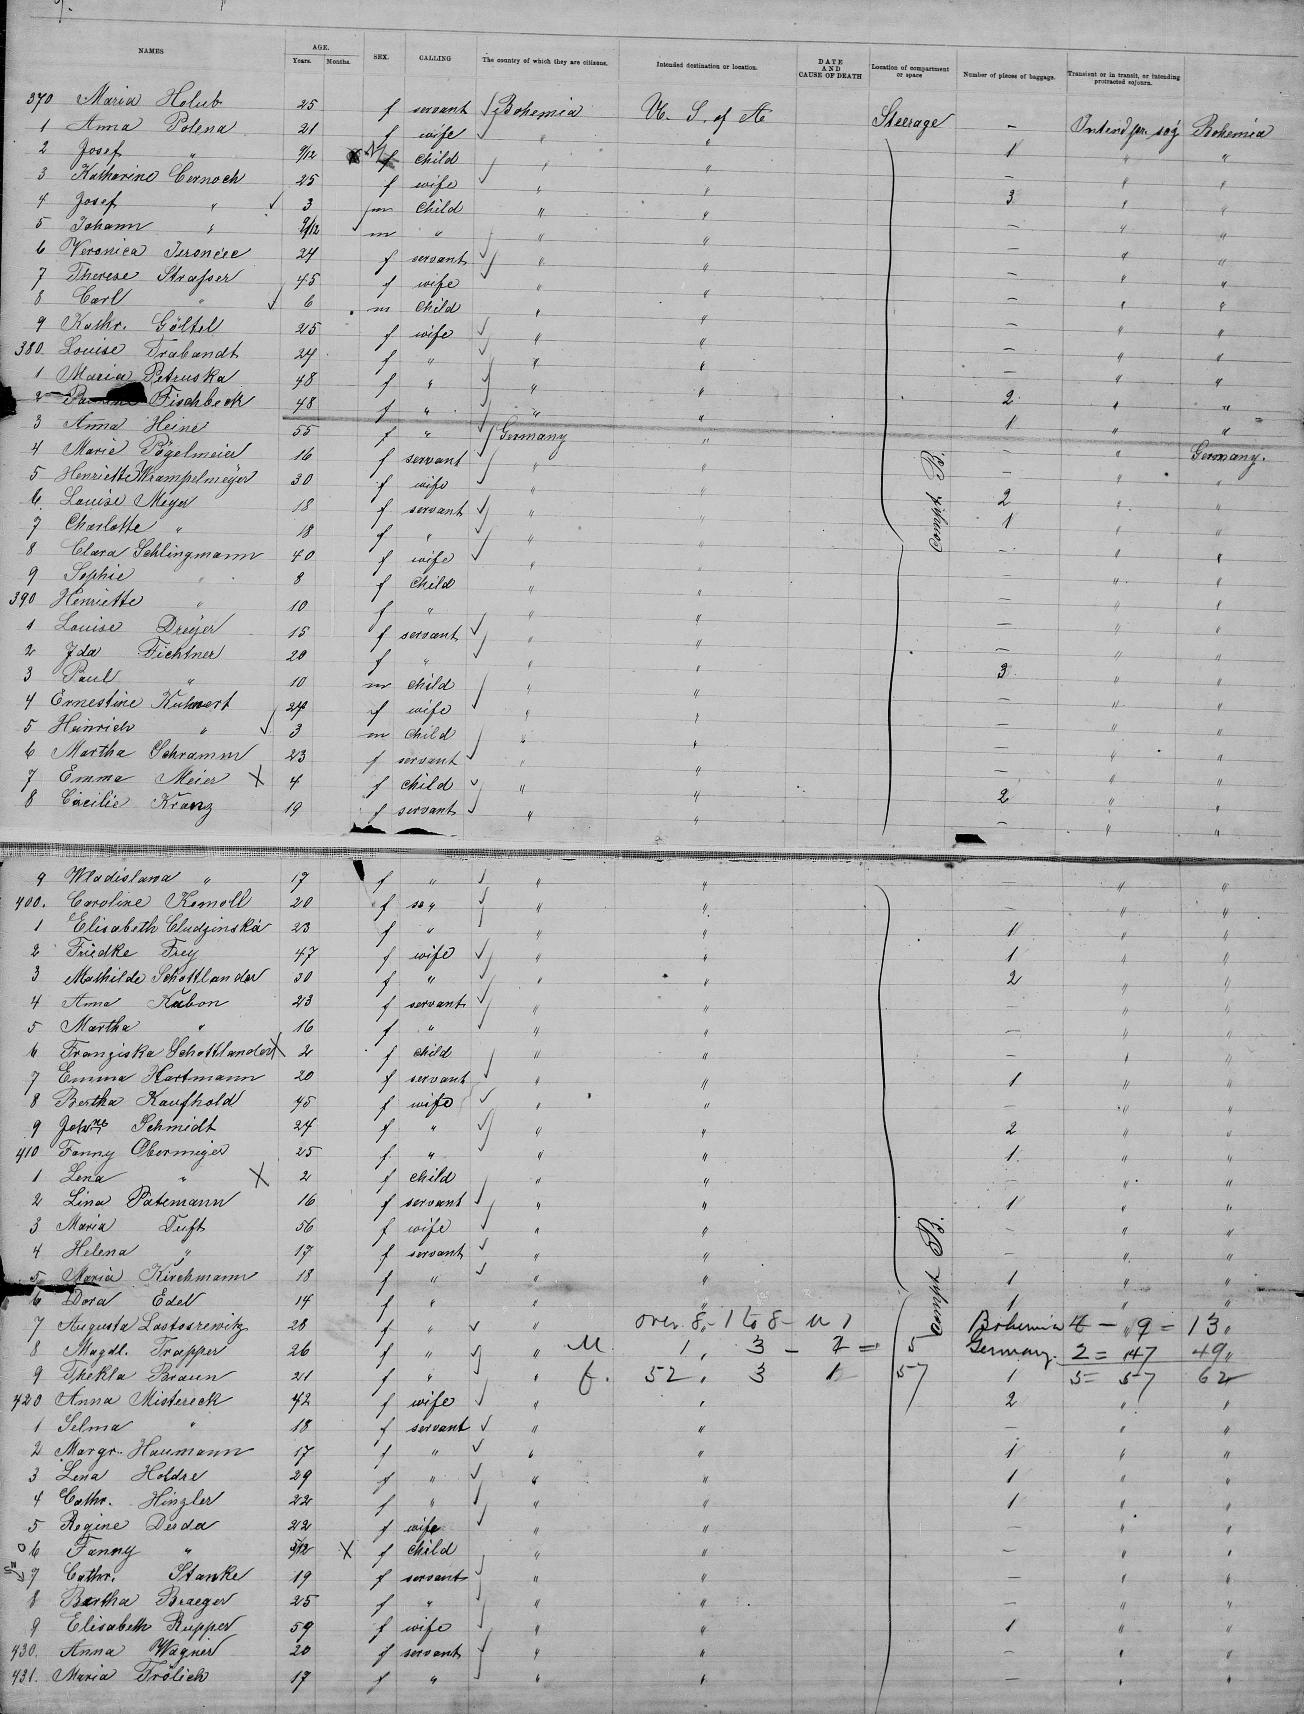 NAMES AGE. Years. Months. SEX. CALLING The country of which they are citizens. Intended destination or location. DATE AND CAUSE OF DEATH Location of compartment or space Number of pieces of baggage. Transient or in transit, or intending protracted sojourn.
370 Maria Holub 25 f servant Bohemia U. S. of A Steerage — Intend pr. soj Bohemia
1 Anna Polena 21 f wife " " 1 " "
2 Josef " 9/12 M child " " — " "
3 Katharine Cernoch 25 f wife " " 3 " "
4 Josef " 3 m child " " — " "
5 Johann " 9/12 m " " " — " "
6 Veronica 24 f servant " " — " "
7 Therese Strasser 45 f wife " " — " "
8 Carl " 6 m child " " — " "
9 Kathr. Göltel 25 f wife " " — " "
380. Louise Trabandt 24 f " " " — " "
1 Maria Petruska 48 f " " " 2 " "
2 Fischbeck 48 f " " " 1 " "
3 Anna Heine 55 f " Germany " — " Germany.
4 Marie Pögelmeier 16 f servant " " — " "
5 Henriette Wrampelmeyer 30 f wife " " 2 " "
6 Louise Meyer 18 f servant " " 1 " "
7 Charlotte " 18 f " " " — " "
compt B.
8 Clara Schlingmann 40 f wife " " — " "
9 Sophie " 8 f child " " — " "
390 Henriette " 10 f " " " — " "
1 Louise Dreyer 15 f servant " " — " "
2 Ida Fichtner 20 f " " " 3 " "
3 Paul " 10 m child " " — " "
4 Ernestine Kuhnert 24 f wife " " — " "
5 Heinrich " 3 m child " " — " "
6 Martha Schramm 23 f servant " " — " "
7 Emma Meier X 4 f child " " 2 " "
8 Cäcilie Kranz 19 f servant " " — " "
9 Wladislawa " 17 f " " " — " "
400. Caroline Kemoll 20 f se " " " — " "
1 Elisabeth Cludzinska 23 f " " " 1 " "
2 Friedke Frey 47 f wife " " 1 " "
3 Mathilde Schottlander 30 f " " " 2 " "
4 Anna Kubon 23 f servant " " — " "
5 Martha " 16 f " " " — " "
6 Franziska Schottlander X 2 f child " " — " "
7 Emma Hartmann 20 f servant " " 1 " "
8 Bertha Kaufhold 45 f wife " " — " "
9 Schmidt 24 f " " " 2 " "
410 Fanny Obermeyer 25 f " " " 1 " "
1 Lena " X 2 f child " " — " "
2 Lina Patemann 16 f servant " " 1 " "
3 Maria Tuft 56 f wife " " — " "
4 Helena " 17 f servant " " — " "
5 Maria Kirchmann 18 f " " " 1 " "
compt B.
6 Dora Edel 14 f " " " 1 " "
7 Augusta Lostosrewitz 28 f " " over 8 - 1 to 8 - u 1 Bohemia 4 - 9 = 13
8 Magdl. Trapper 26 f " " M 1 3 - 1 = 5 Germany. 2 = 47 49
9 Thekla Braun 21 f " " f. 52 3 1 57 1 5 = 57 62
420 Anna Mistereck 42 f wife " " 2 " "
1 Selma " 18 f servant " " — " "
2 Margr. Haumann 17 f " " " 1 " "
3 Lena Holdre 29 f " " " 1 " "
4 Cathr. Hinzler 22 f " " " 1 " "
5 Regine Derda 22 f wife " " — " "
6 Fanny " 5/12 X f child " " — " "
7 Cathr. Stanke 19 f servant " " — " "
8 Bertha Braeger 25 f " " " — " "
9 Elisabeth Rupper 59 f wife " " 1 " "
430. Anna Wagner 20 f servant " " — " "
431. Maria Frölich 17 f " " " — " "